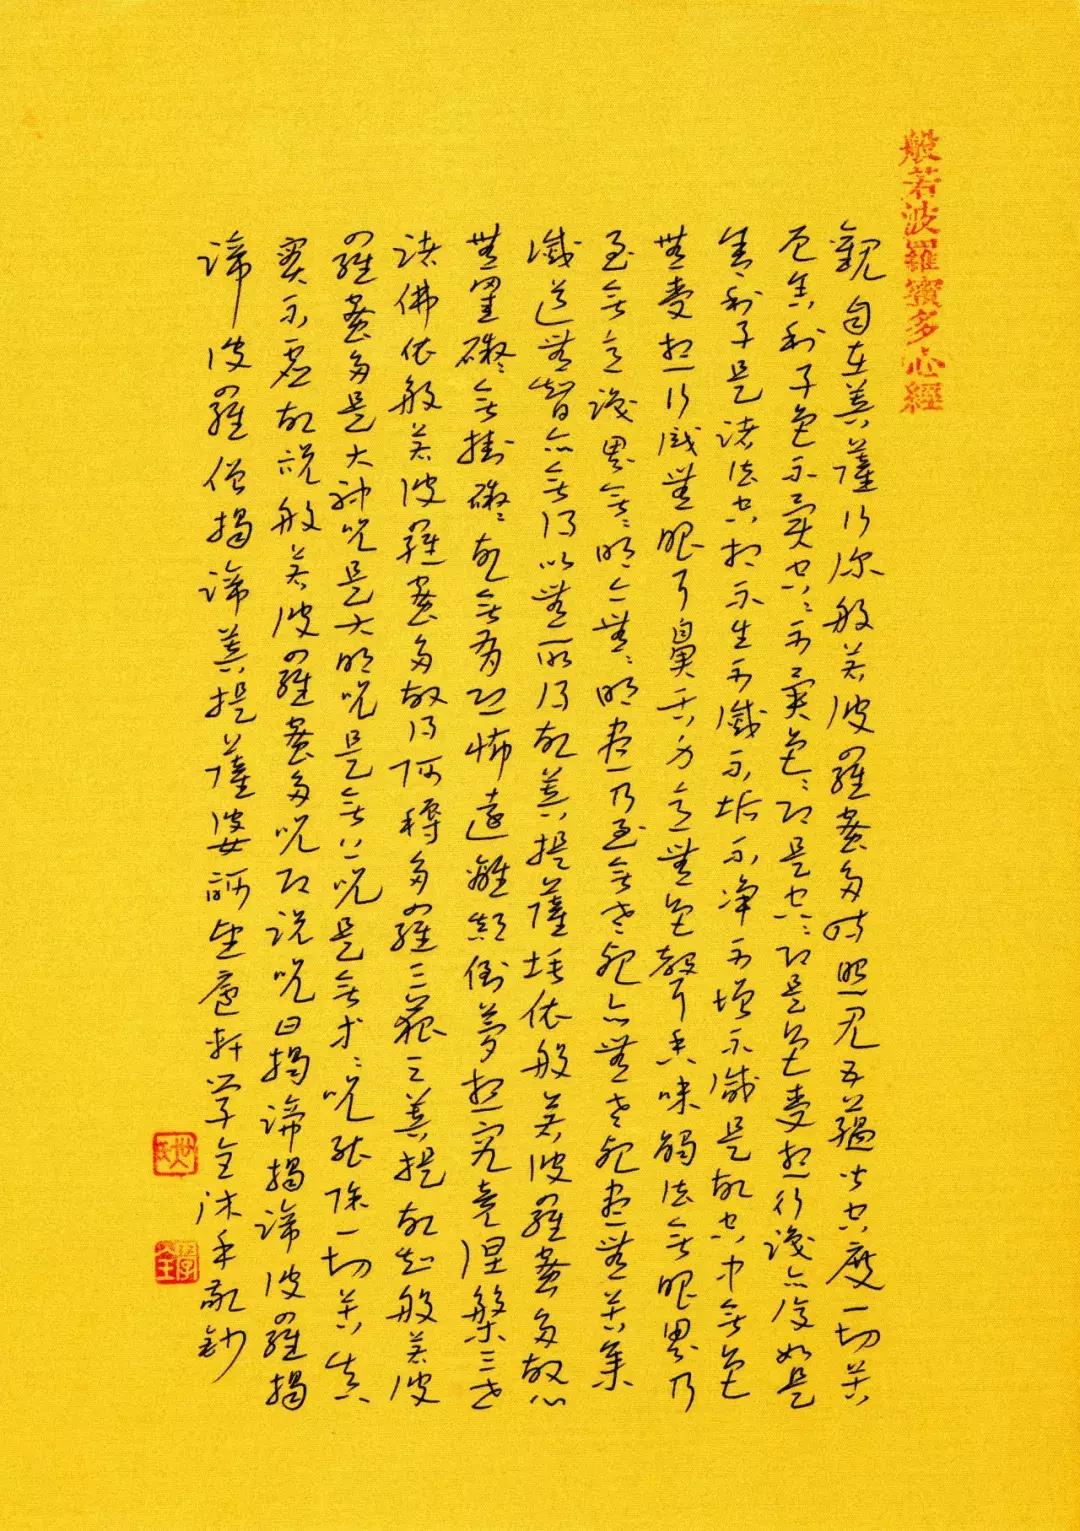 般若波羅蜜多心經
觀自在菩薩行深般若波羅蜜多時照見五蘊皆空度一切苦
厄舍利子色不異空〻不異色〻即是空〻即是色受想行識亦復如是
舍利子是諸法空相不生不滅不垢不淨不增不減是故空中無色
無受想行識無眼耳鼻舌身意無色聲香味觸法無眼界乃
至無意識界無〻明亦無〻明盡乃至無老死亦無老死盡無苦集
滅道無智亦無得以無所得故菩提薩埵依般若波羅蜜多故心
無罣礙無掛礙故無有恐怖遠離顛倒夢想究竟涅槃三世
諸佛依般若波羅蜜多故得阿耨多羅三藐三菩提故知般若波
羅蜜多是大神咒是大明咒是無上咒是無等〻咒能除一切苦真
實不虛故說般若波羅蜜多咒即說咒曰揭諦揭諦波羅揭
諦波羅僧揭諦菩提薩婆訶坐軒學全沐手敬鈔
學全